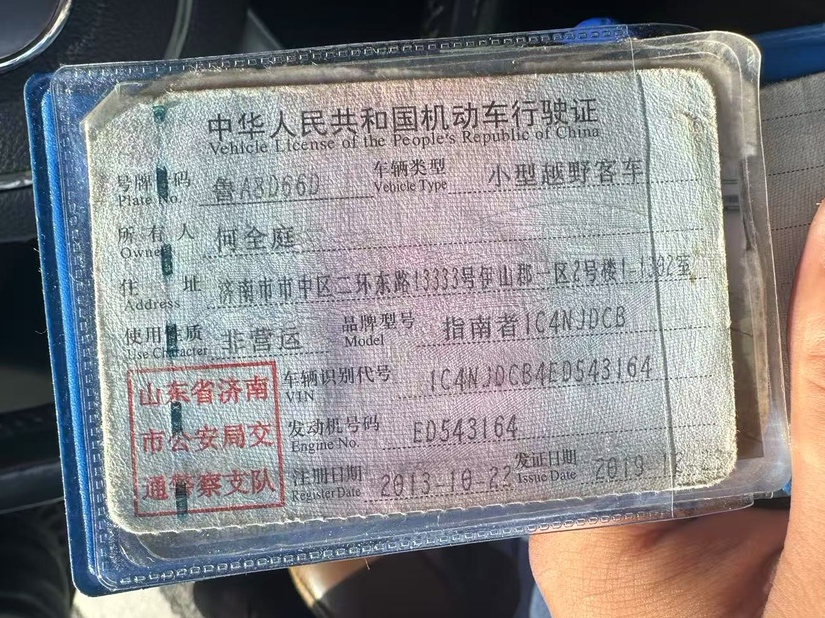 中华人民共和国机动车行驶证
Vehicle License of the People's Republic of China
号牌号码 鲁A8D66D 车辆类型 小型越野客车
Plate No. Vehicle Type
所有人 何全庭
Owner
住址 济南市市中区二环东路13333号伊山郡一区2号楼1-1302室
Address
使用性质 非营运 品牌型号 指南者1C4NJDCB
Use Character Model
山东省济南 车辆识别代号 1C4NJDCB4ED543164
VIN
市公安局交 发动机号码 ED543164
Engine No.
通警察支队 注册日期 2013-10-22 发证日期
Register Date Issue Date